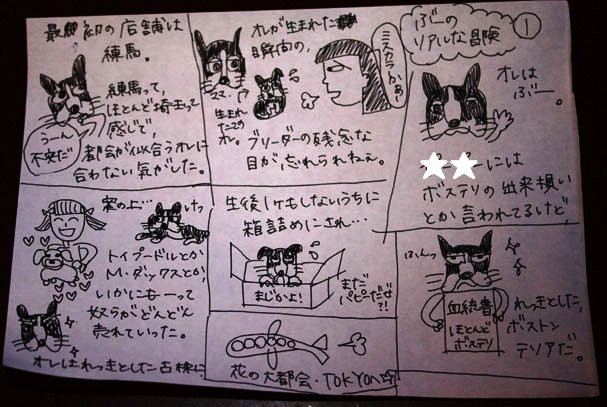 ①
ぶーの
リアルな冒険
オレは
ぶー。
★★には
ボステリの出来損い
とか言われてるけど、
ふんっ
血統書
ほとんど
ボステリ
れっきとした、
ボストン
テリアだ。
オレが生まれた
瞬間の、
ミスカラかぁ〜
ママ
生まれ
たての
オレ。
ブリーダーの残念な
目が忘れられねぇ。
生後1ヶ月もしないうちに
箱詰めにされ…
まじかよ!
まだ
パピーだぜ
?!
花の大都会・TOKYOへ☆
最初の店舗は
練馬。
練馬って、
ほとんど埼玉って
感じで、
都会が似合うオレに
合わない気がした。
うーん
不安だ
案の上…
けっ
トイプードルとか
M・ダックスとか、
いかにもーって
奴らがどんどん
売れていった。
オレはれっきとした古株に、